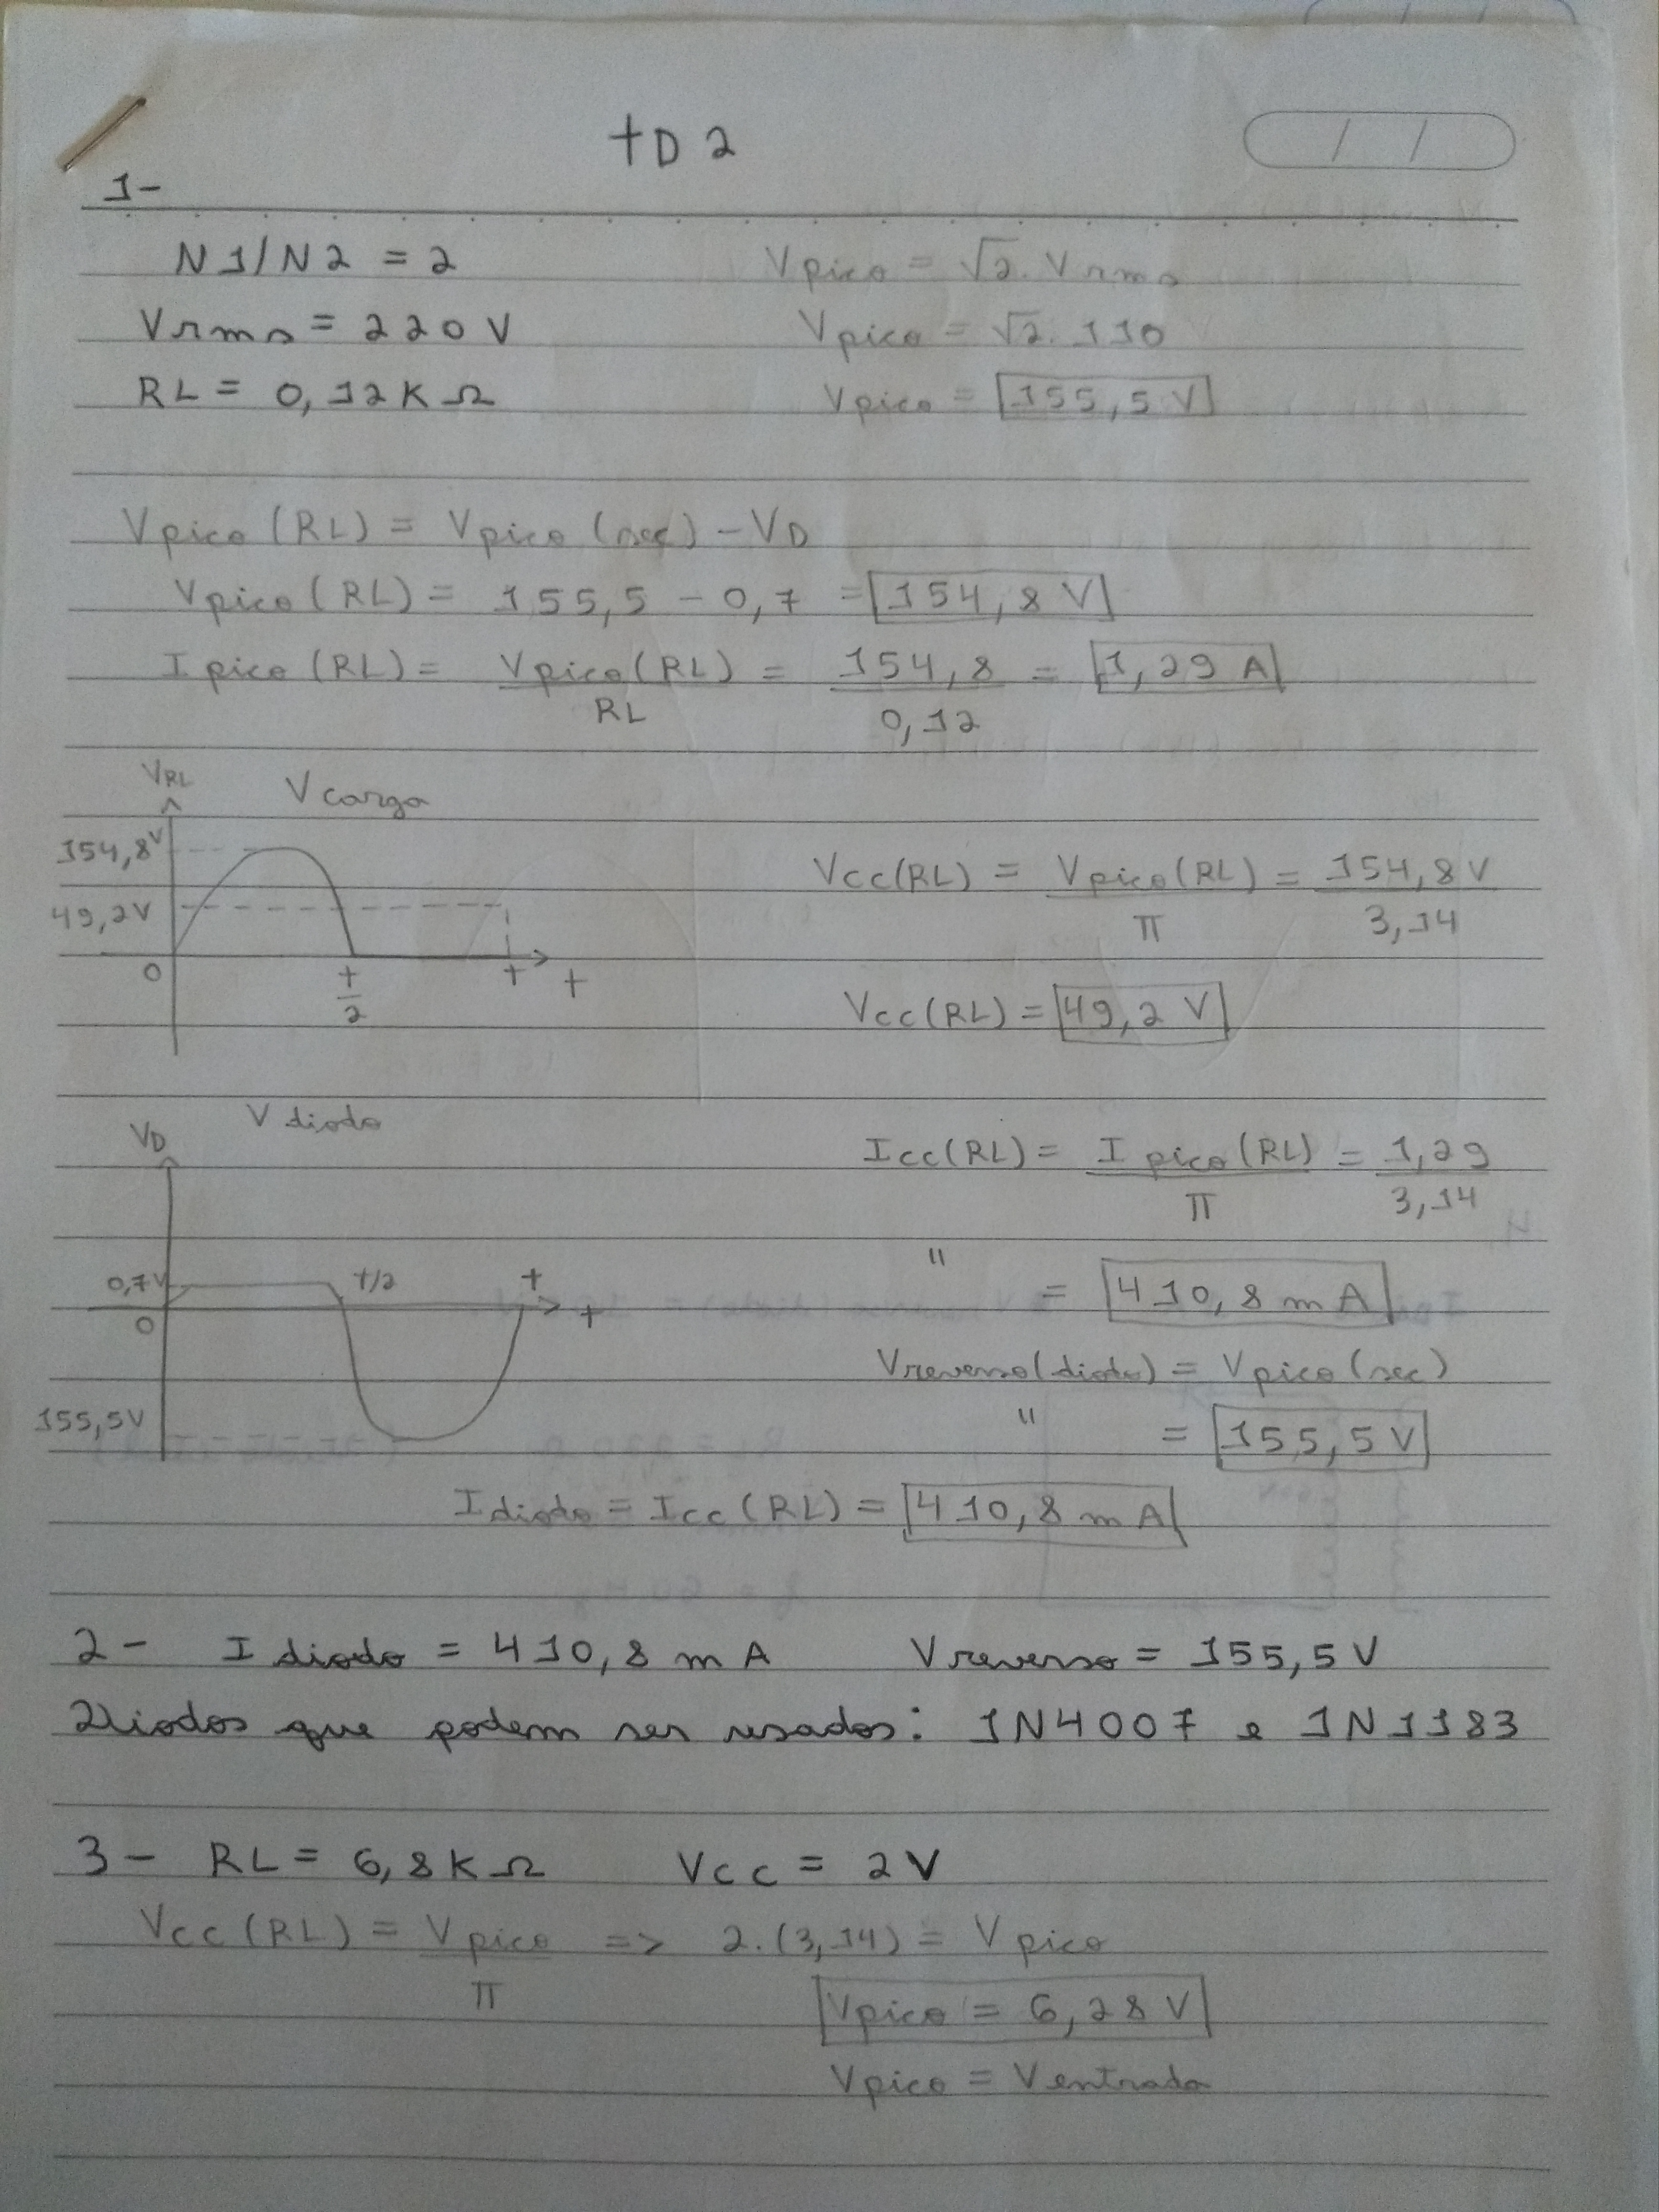 TD 2
1-
N1/N2 = 2
Vrms = 220 V
RL = 0,12 K Ω
Vpico = √2 . Vrms
Vpico = √2 . 110
Vpico = 155,5 V
Vpico (RL) = Vpico (sec) - VD
Vpico (RL) = 155,5 - 0,7 = 154,8 V
I pico (RL) = Vpico (RL) / RL = 154,8 / 0,12 = 1,29 A
VRL V carga
154,8V
49,2V
0 T/2 T t
Vcc(RL) = Vpico(RL) / π = 154,8 V / 3,14
Vcc(RL) = 49,2 V
VD V diodo
0,7V T/2 T
0 t
155,5V
Icc(RL) = I pico (RL) / π = 1,29 / 3,14
" = 410,8 m A
Vreverso(diodo) = Vpico (sec)
" = 155,5 V
I diodo = Icc (RL) = 410,8 m A
2 - I diodo = 410,8 m A V reverso = 155,5 V
Diodos que podem ser usados: 1N4007 e 1N1183
3 - RL = 6,8 K Ω Vcc = 2 V
Vcc (RL) = Vpico / π => 2 . (3,14) = V pico
Vpico = 6,28 V
Vpico = V entrada